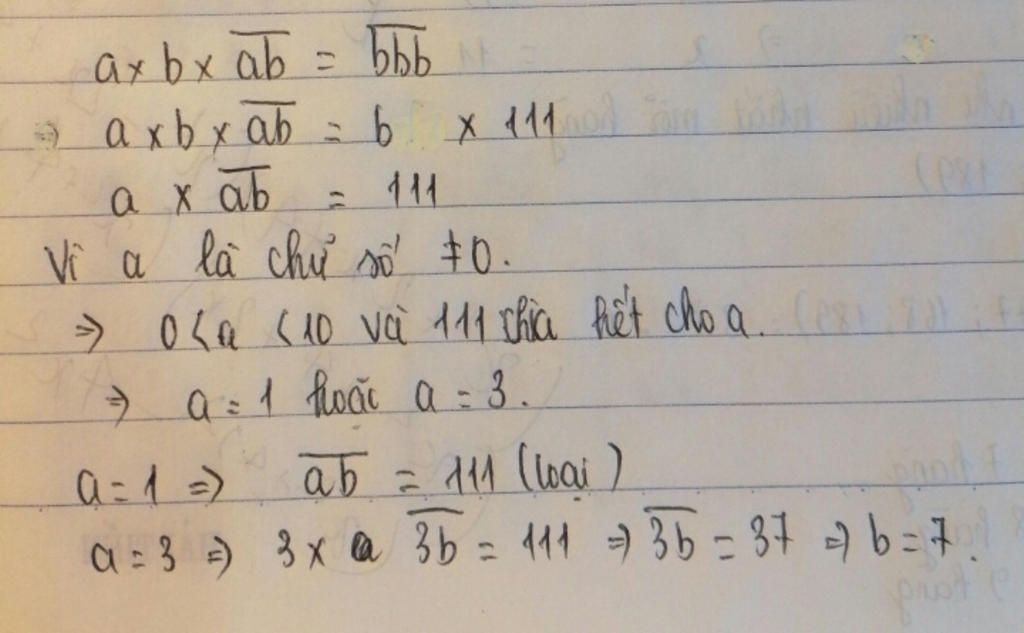 a x b x \overline{ab} = \overline{bbb}
⇒ a x b x \overline{ab} = b x 111
a x \overline{ab} = 111
Vì a là chữ số ≠ 0.
⇒ 0 < a < 10 và 111 chia hết cho a.
⇒ a = 1 hoặc a = 3.
a = 1 ⇒ \overline{ab} = 111 (loại)
a = 3 ⇒ 3 x \overline{3b} = 111 ⇒ \overline{3b} = 37 ⇒ b = 7.